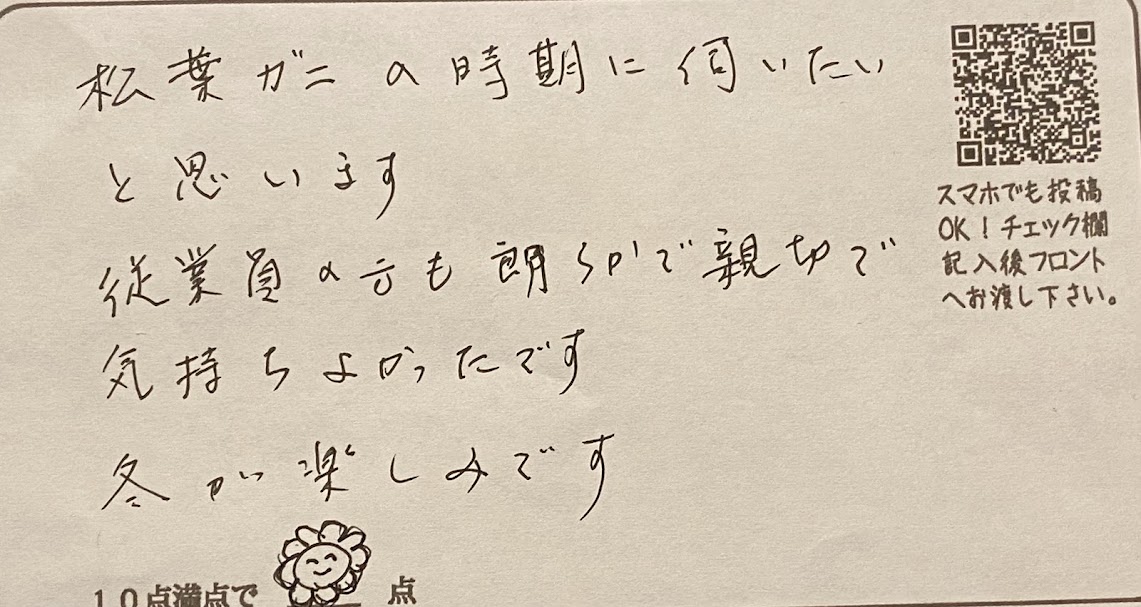 松葉ガニの時期に伺いたい
と思います
従業員の方も朗らかで親切で
気持ちよかったです
冬が楽しみです
スマホでも投稿
OK！チェック欄
記入後フロント
へお渡し下さい。
10点満点で 点